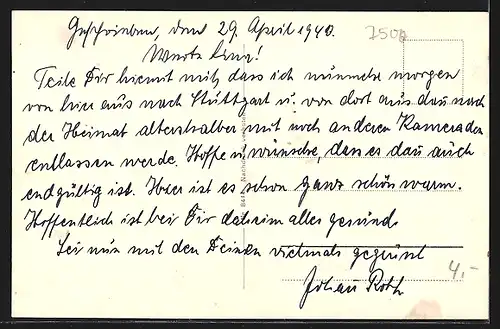 Geschrieben, den 29. April 1940.
7500
Werte Lena!
Teile Dir hiermit mit, dass ich nunmehr morgen
von hier aus nach Stuttgart u. von dort aus dann nach
der Heimat altershalber mit noch anderen Kameraden
entlassen werde. Hoffe u. wünsche, dass es dann auch
endgültig ist. Hier ist es schon ganz schön warm.
Hoffentlich ist bei Dir daheim alles gesund.
Sei nun mit den Deinen vielmals gegrüsst
Johann Roth
4,-